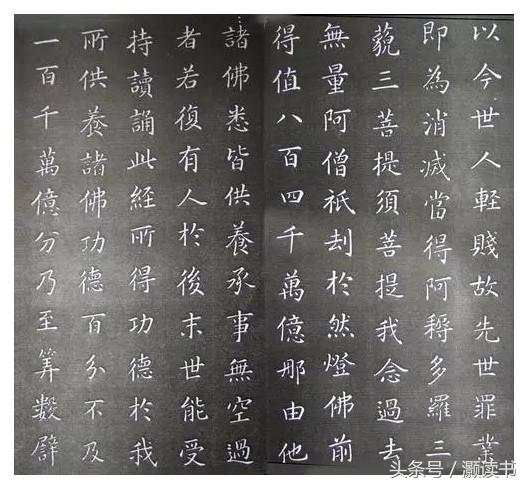 以今世人輕賤故先世罪業
即為消滅當得阿耨多羅三
藐三菩提須菩提我念過去
無量阿僧祇刦於然燈佛前
得值八百四千萬億那由他
諸佛悉皆供養承事無空過
者若復有人於後末世能受
持讀誦此經所得功德於我
所供養諸佛功德百分不及
一百千萬億分乃至筭數譬
头条号／灏读书